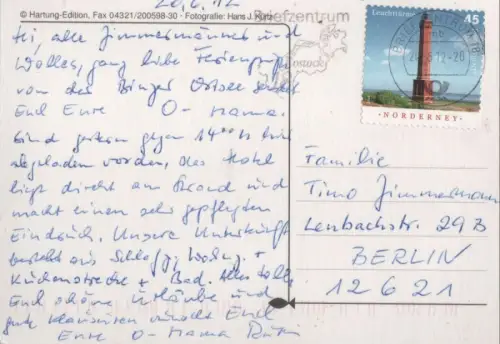 © Hartung-Edition, Fax 04321/200598-30 - Fotografie: Hans J. Kürtz
20.6.12
Hei, alle Zimmermänner und
Wolles, ganz liebe Feriengrüße
von der Binzer Ostsee sendet
Euch Eure O-Mama.
Sind gestern gegen 14°° h hier
abgeladen worden, das Hotel
liegt direkt am Strand und
macht einen sehr gepflegten
Eindruck. Unsere Unterkunft
besteht aus Schlafz, Wohnz. +
Küchenstrecke + Bad. Alles tolle
Euch schöne Urlaube und
gute Klausuren wünscht Euch
Eure O-Mama
Briefzentrum
Rostock
Leuchttürme
45
NORDERNEY
Familie
Timo Zimmermann
Lenbachstr. 29B
BERLIN
12621